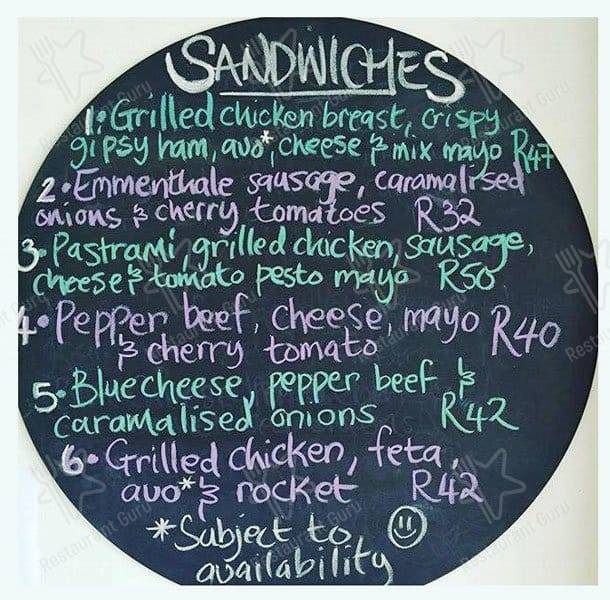 SANDWICHES
1. Grilled chicken breast, crispy
gipsy ham, avo*, cheese & mix mayo R47
2. Emmenthale sausage, caramalised
onions & cherry tomatoes R32
3. Pastrami, grilled chicken, sausage,
cheese & tomato pesto mayo R50
4. Pepper beef, cheese, mayo R40
& cherry tomato
5. Bluecheese, pepper beef &
caramalised onions R42
6. Grilled chicken, feta,
avo* & rocket R42
*Subject to
availability
Restaurant Guru